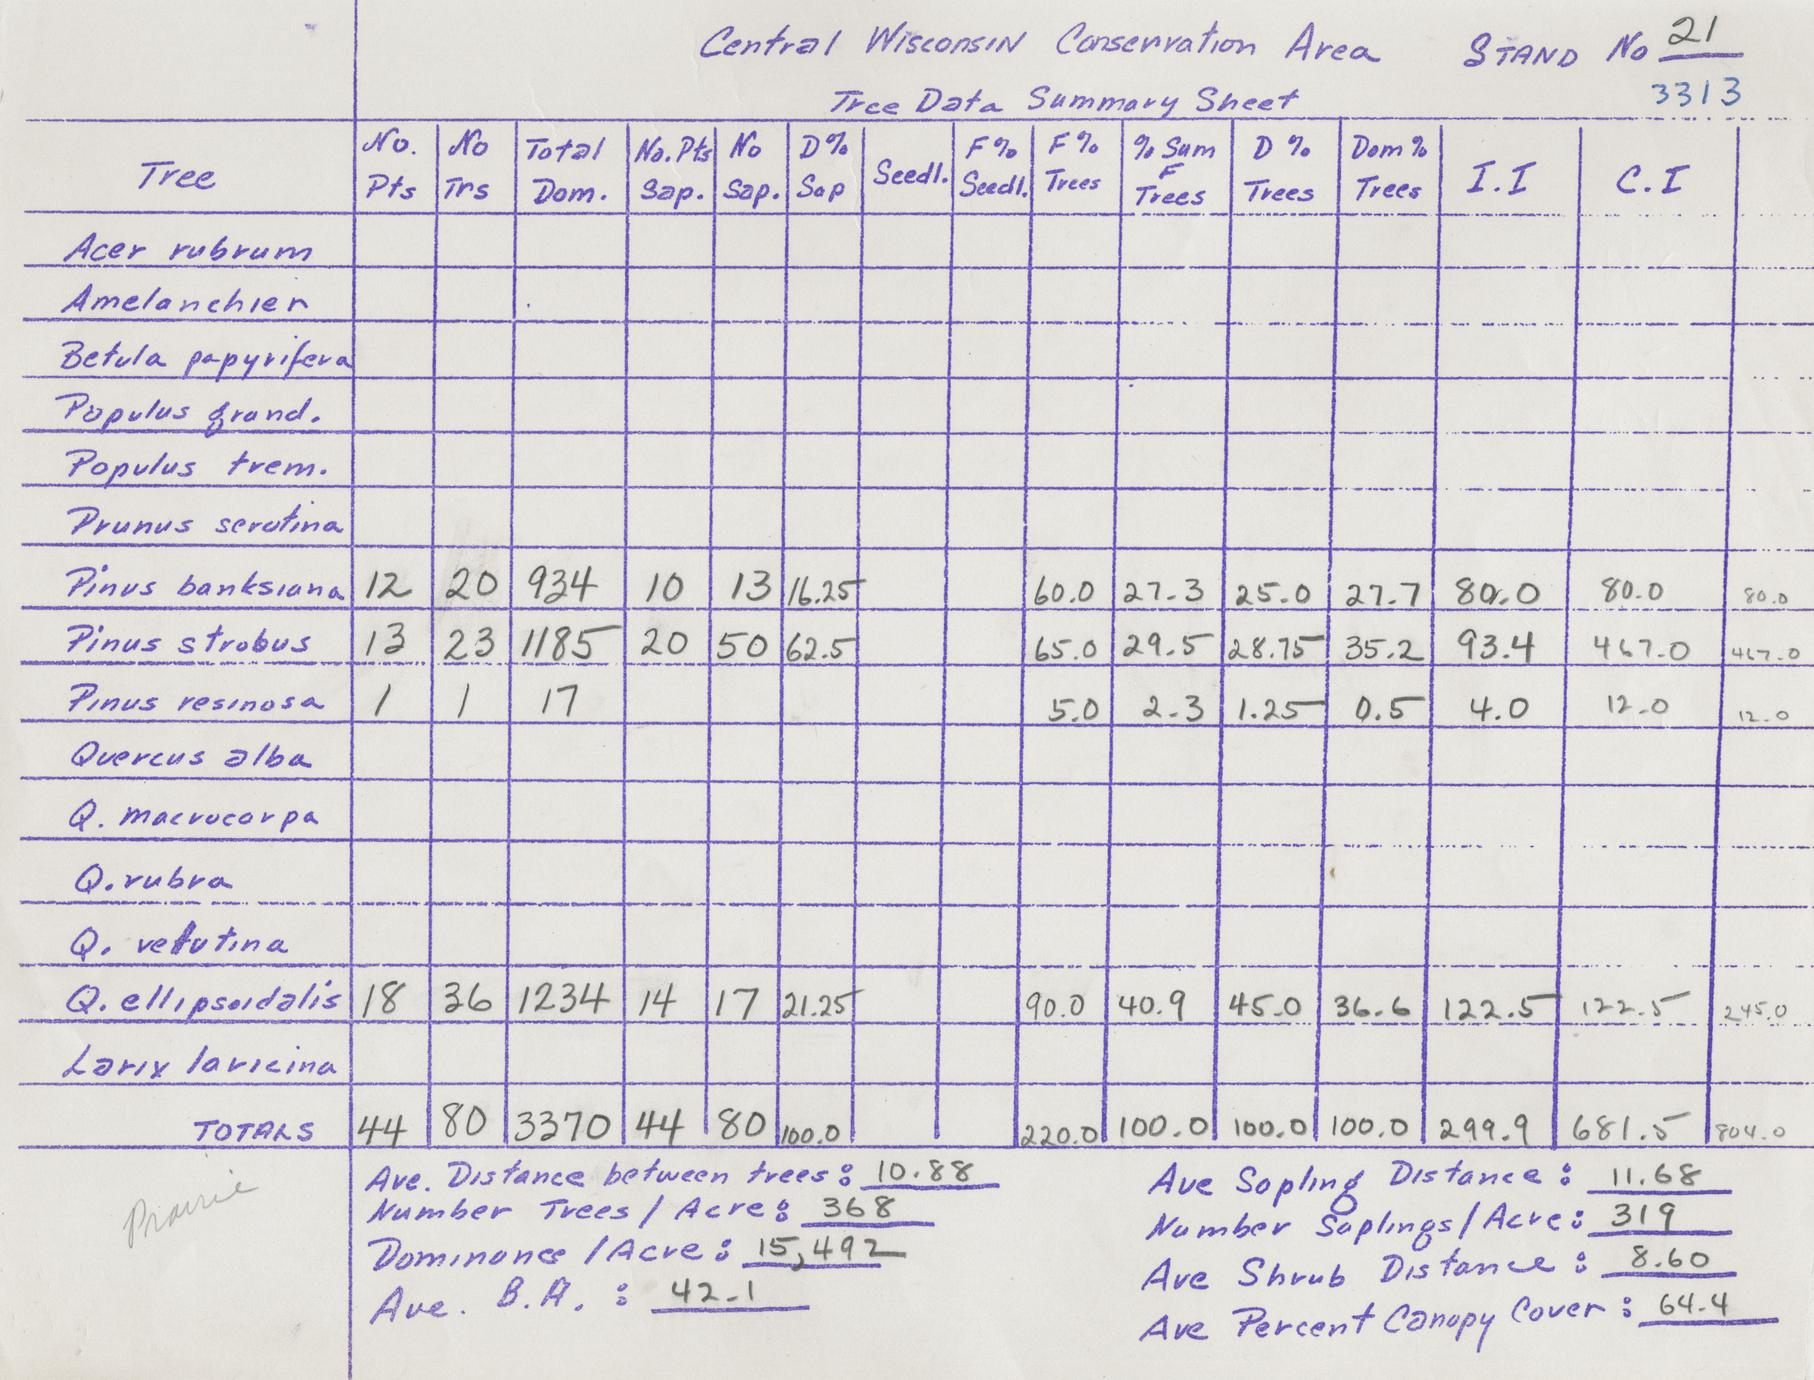 Central Wisconsin Conservation Area STAND No 21
Tree Data Summary Sheet 3313
Tree No. Pts No Trs Total Dom. No. Pts Sap. No Sap. D% Sap Seedl. F% Seedl. F% Trees % Sum F Trees D % Trees Dom % Trees I.I C.I
Acer rubrum
Amelanchier
Betula papyrifera
Populus grand.
Populus trem.
Prunus serotina
Pinus banksiana 12 20 934 10 13 16.25 60.0 27.3 25.0 27.7 80.0 80.0 80.0
Pinus strobus 13 23 1185 20 50 62.5 65.0 29.5 28.75 35.2 93.4 467.0 467.0
Pinus resinosa 1 1 17 5.0 2.3 1.25 0.5 4.0 12.0 12.0
Quercus alba
Q. macrocarpa
Q. rubra
Q. velutina
Q. ellipsoidalis 18 36 1234 14 17 21.25 90.0 40.9 45.0 36.6 122.5 122.5 245.0
Larix laricina
TOTALS 44 80 3370 44 80 100.0 220.0 100.0 100.0 100.0 299.9 681.5 804.0
Prairie
Ave. Distance between trees: 10.88
Number Trees / Acre: 368
Dominance / Acre: 15,492
Ave. B.A. : 42.1
Ave Sapling Distance: 11.68
Number Saplings / Acre: 319
Ave Shrub Distance: 8.60
Ave Percent Canopy Cover: 64.4